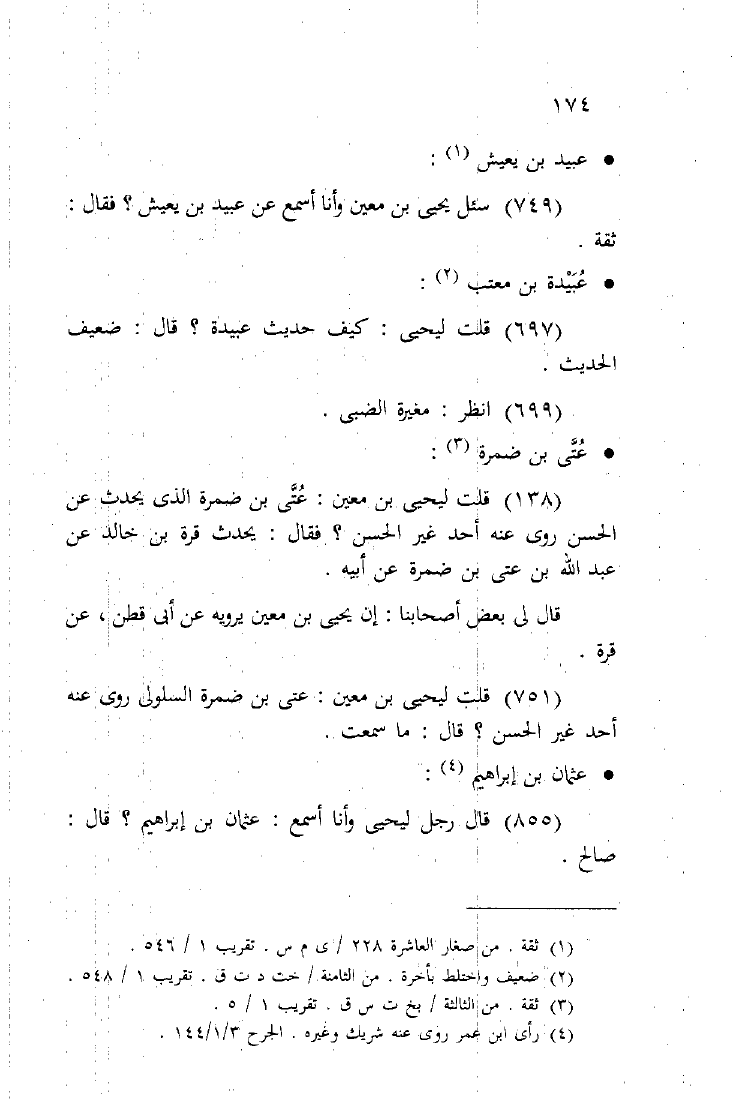 ١٧٤
● عبيد بن يعيش (١) :
(٧٤٩) سئل يحيى بن معين وأنا أسمع عن عبيد بن يعيش ؟ فقال :
ثقة .
● عُبَيْدة بن معتب (٢) :
(٦٩٧) قلت ليحيى : كيف حديث عبيدة ؟ قال : ضعيف
الحديث .
(٦٩٩) انظر : مغيرة الضبى .
● عُتَّى بن ضمرة (٣) :
(١٣٨) قلت ليحيى بن معين : عُتَّى بن ضمرة الذى يحدث عن
الحسن روى عنه أحد غير الحسن ؟ فقال : يحدث قرة بن خالد عن
عبد الله بن عتى بن ضمرة عن أبيه .
قال لى بعض أصحابنا : إن يحيى بن معين يرويه عن أبى قطن ، عن
قرة .
(٧٥١) قلت ليحيى بن معين : عتى بن ضمرة السلولى روى عنه
أحد غير الحسن ؟ قال : ما سمعت .
● عثمان بن إبراهيم (٤) :
(٨٥٥) قال رجل ليحيى وأنا أسمع : عثمان بن إبراهيم ؟ قال :
صالح .
(١) ثقة . من صغار العاشرة ٢٢٨ / ى م س . تقريب ١ / ٥٤٦ .
(٢) ضعيف واختلط بأخرة . من الثامنة / خت د ت ق . تقريب ١ / ٥٤٨ .
(٣) ثقة . من الثالثة / بخ ت س ق . تقريب ١ / ٥ .
(٤) رأى ابن عمر روى عنه شريك وغيره . الجرح ١٤٤/١/٣ .